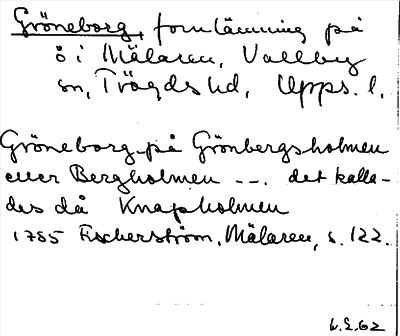 Gröneborg, fornlämning på
ö i Mälaren, Vallby
sn, Trögds hd, Upps. l.
Gröneborg på Grönbergsholmen
eller Bergholmen --. det kalla-
des då Knapholmen
1785 Fischerström, Mälaren, s. 122.
6.2.62